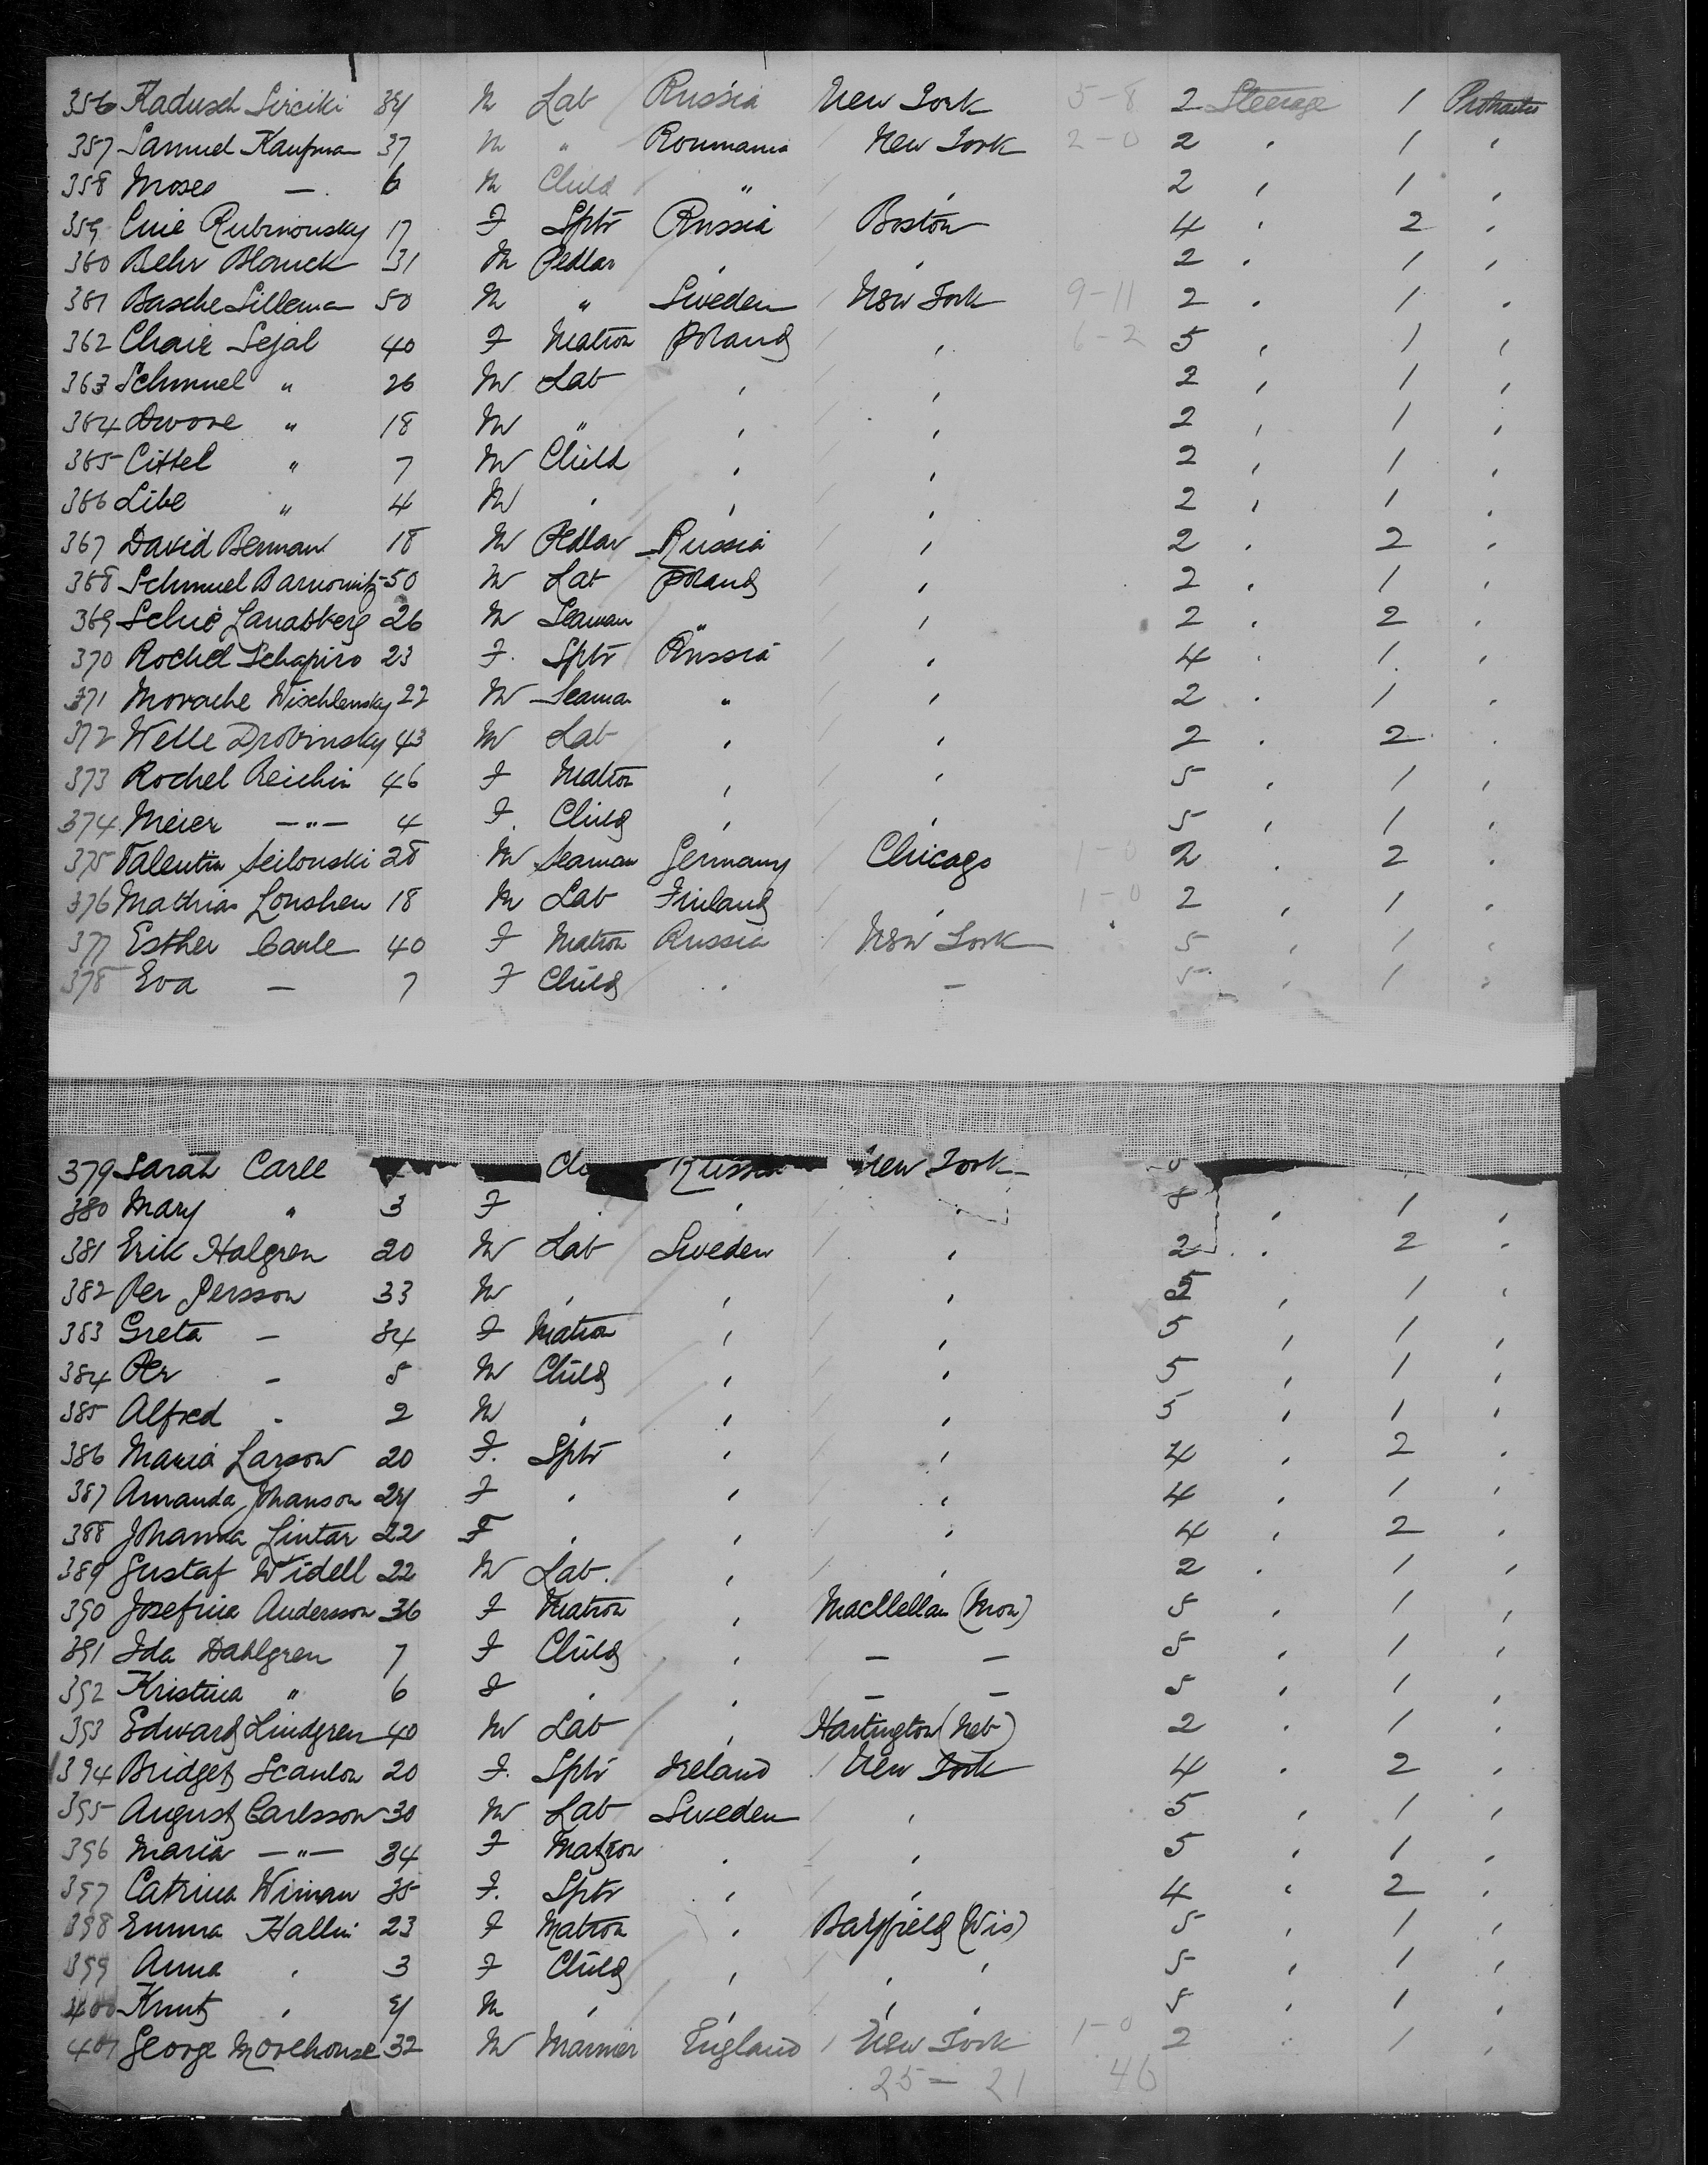 356 Kadusch Sirciki 34 M Lab Russia New York 5-8 2 Steerage 1 Protracted
357 Samuel Kaufman 37 M " Roumania New York 2-0 2 , 1 ,
358 Moses — 6 M Child " , 2 , 1 ,
359 Rubinowsky 17 F Sptr Russia Boston 4 , 2 ,
360 Behr Blanck 31 M Pedlar , , 2 , 1 ,
361 Basche Sillema 50 M " Sweden New York 9-11 2 , 1 ,
362 Chaie Sejal 40 F Matron Poland , 6-2 5 , 1 ,
363 Schmuel " 26 M Lab , , 2 , 1 ,
364 Dwore " 18 M " , , 2 , 1 ,
365 Cittel " 7 M Child , , 2 , 1 ,
366 Libe " 4 M , , , 2 , 1 ,
367 David Berman 18 M Pedlar Russia , 2 , 2 ,
368 Schmuel Barnowitz 50 M Lab Poland , 2 , 1 ,
369 Schie 26 M Seaman " , 2 , 2 ,
370 Rochel Schapiro 23 F. Sptr Russia , 4 , 1 ,
371 Morache Wischlensky 22 M Seaman " , 2 , 1 ,
372 Welle Drobinsky 43 M Lab , , 2 , 2 ,
373 Rochel Reichin 46 F Matron , , 5 , 1 ,
374 Meier —"— 4 F. Child , , 5 , 1 ,
375 Valentin Seilonski 28 M Seaman Germany Chicago 1-0 2 , 2 ,
376 Mathias Loushen 18 M Lab Finland , 1-0 2 , 1 ,
377 Esther Carle 40 F Matron Russia New York 5 , 1 ,
378 Eva — 7 F Child , — 5 , 1 ,
379 Sarah Carle Russia New York
380 Mary " 3 F , , 1 ,
381 Erik Halgren 20 M Lab Sweden , 2 , 2 ,
382 Per Persson 33 M , , , 5 , 1 ,
383 Greta — 34 F Matron , , 5 , 1 ,
384 Per - 5 M Child , , 5 , 1 ,
385 Alfred - 2 M , , , 5 , 1 ,
386 Maria Larson 20 F. Sptr , , 4 , 2 ,
387 Amanda Johanson 24 F , , , 4 , 1 ,
388 Johanna Lintar 22 F , , , 4 , 2 ,
389 Gustaf Widell 22 M Lab. , , 2 , 1 ,
390 Josefina Andersson 36 F Matron , MacClellan (Mon) 5 , 1 ,
391 Ida Dahlgren 7 F Child , — — 5 , 1 ,
392 Kristina " 6 F , , — — 5 , 1 ,
393 Edward Lindgren 40 M Lab , Hartington (Neb) 2 , 1 ,
394 Bridget Scanlon 20 F. Sptr Ireland New York 4 , 2 ,
395 August Carlsson 30 M Lab Sweden , 5 , 1 ,
396 Maria —"— 34 F Matron , , 5 , 1 ,
397 Catrina Wiman 35 F. Sptr , , 4 , 2 ,
398 Emma Hallin 23 F Matron , Bayfield (Wis) 5 , 1 ,
399 Anna , 3 F Child , , , 5 , 1 ,
400 Knut , 4 M , , , , 5 , 1 ,
401 George Morehouse 32 M Mariner England New York 1-0 2 , 1 ,
25 — 21 46